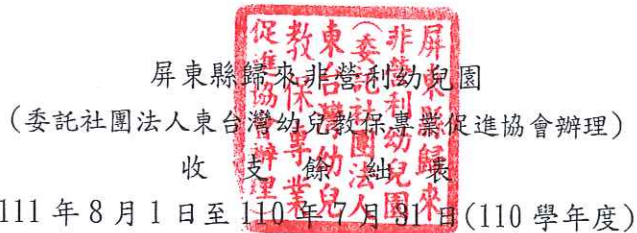 屏東縣歸來非營利幼兒園
(委託社團法人東台灣幼兒教保專業促進協會辦理)
收支餘絀表
111年8月1日至110年7月31日(110學年度)
屏東縣歸來
非營利幼兒園
(委託社團法人
東台灣幼兒
教保專業
促進協會辦理)